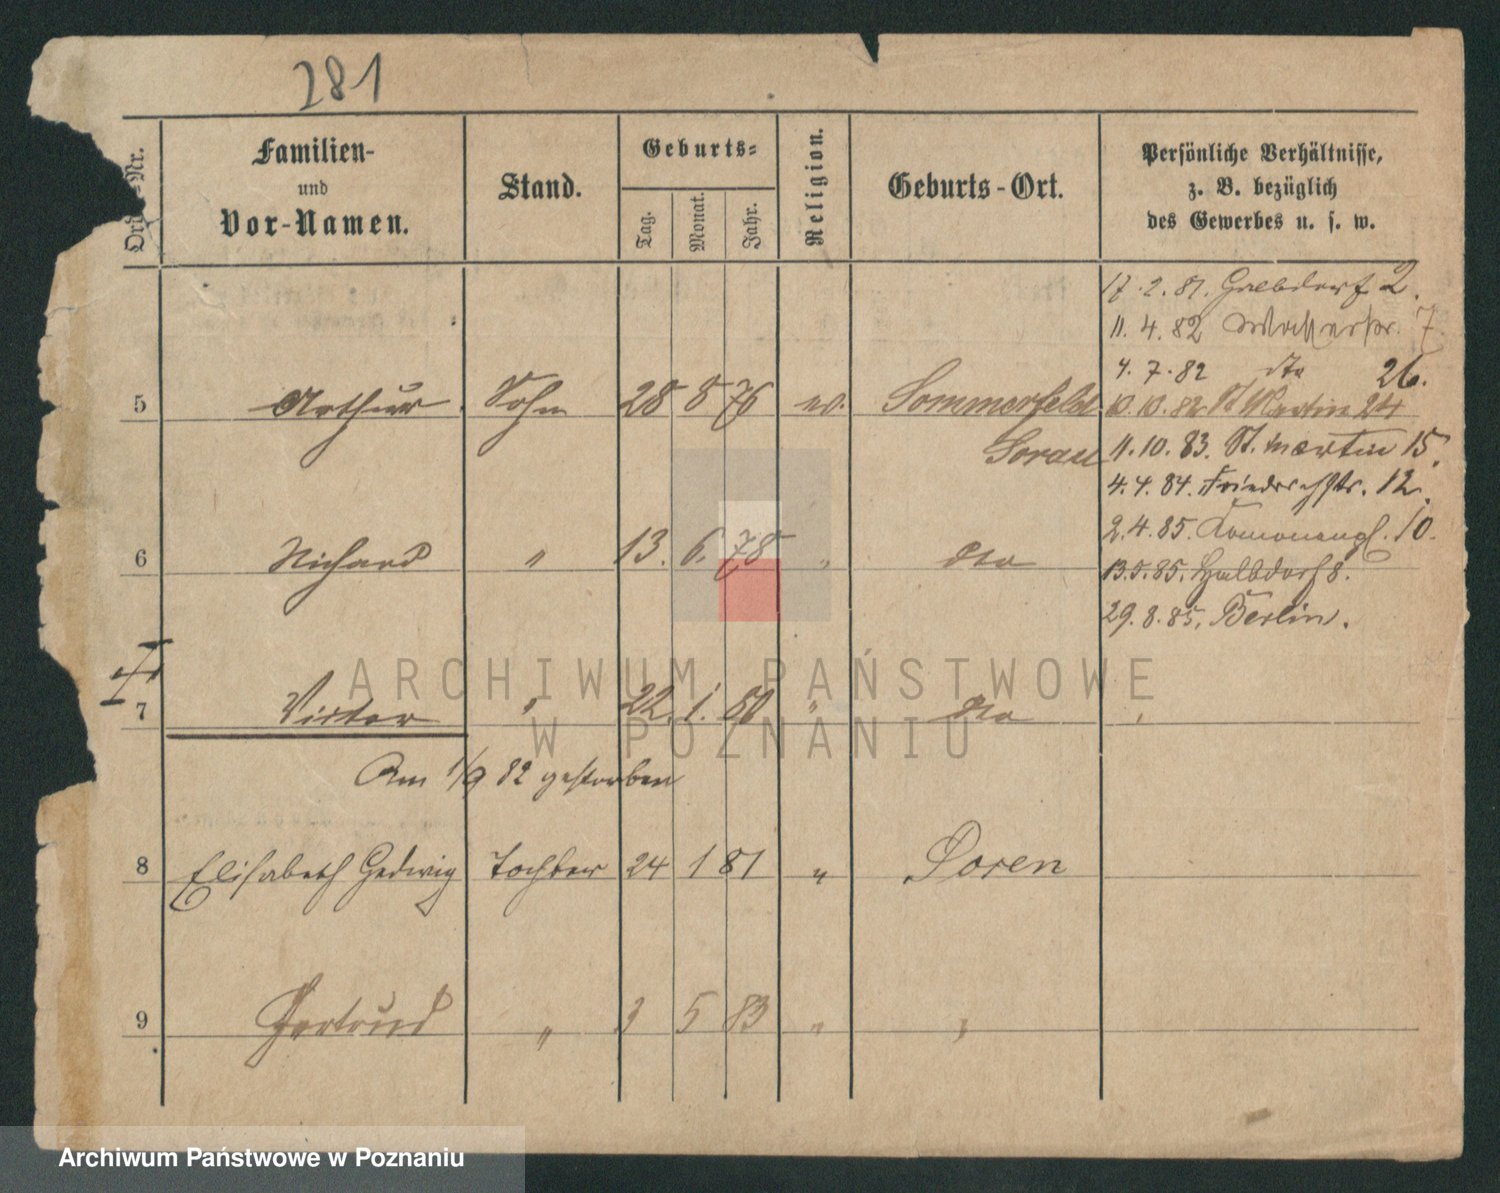 281
Ord.-Nr.
Familien-
und
Vor-Namen.
Stand.
Geburts-
Tag.
Monat.
Jahr.
Religion.
Geburts-Ort.
Persönliche Verhältnisse,
z. B. bezüglich
des Gewerbes u. s. w.
17.2.81. Halbdorf 2.
11.4.82 7
4.7.82 dto 26.
10.10.82 St Martin 24
11.10.83. St. Martin 15.
4.4.84. Friedrichstr. 12.
2.4.85. 10.
13.5.85. Halbdorf 8.
29.8.85. Berlin.
5 Arthur Sohn 28 8 76 ev. Sommerfeld
Sorau
6 Richard " 13. 6. 78 " dto
7 Victor " 22. 1. 80 " dto
Am 1/9 82 gestorben
8 Elisabeth Hedwig Tochter 24 1 81 " Posen
9 Gertrud " 3 5 83 " "
ARCHIWUM PAŃSTWOWE
W POZNANIU
Archiwum Państwowe w Poznaniu